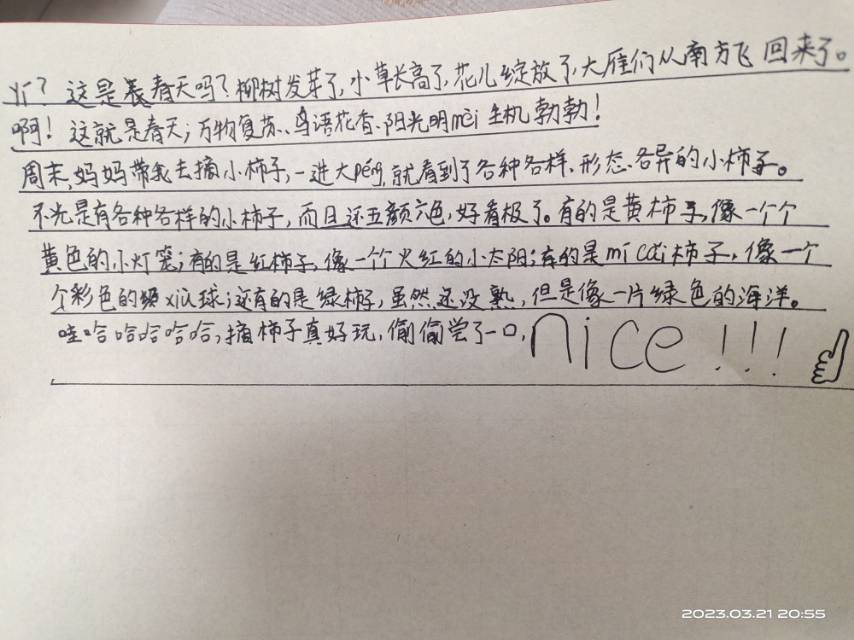 吖？这是春天吗？柳树发芽了，小草长高了，花儿绽放了，大雁们从南方飞回来了。
啊！这就是春天；万物复苏、鸟语花香、阳光明mèi 生机勃勃！
周末，妈妈带我去摘小柿子，一进大péng，就看到了各种各样、形态、各异的小柿子。
不光是有各种各样的小柿子，而且还五颜六色，好看极了。有的是黄柿子，像一个个
黄色的小灯笼；有的是红柿子，像一个火红的小太阳；有的是mí cǎi柿子，像一个
个彩色的xiù球；还有的是绿柿子，虽然还没熟，但是像一片绿色的海洋。
哇哈哈哈哈哈，摘柿子真好玩，偷偷尝了一口，nice！！！
2023.03.21 20:55